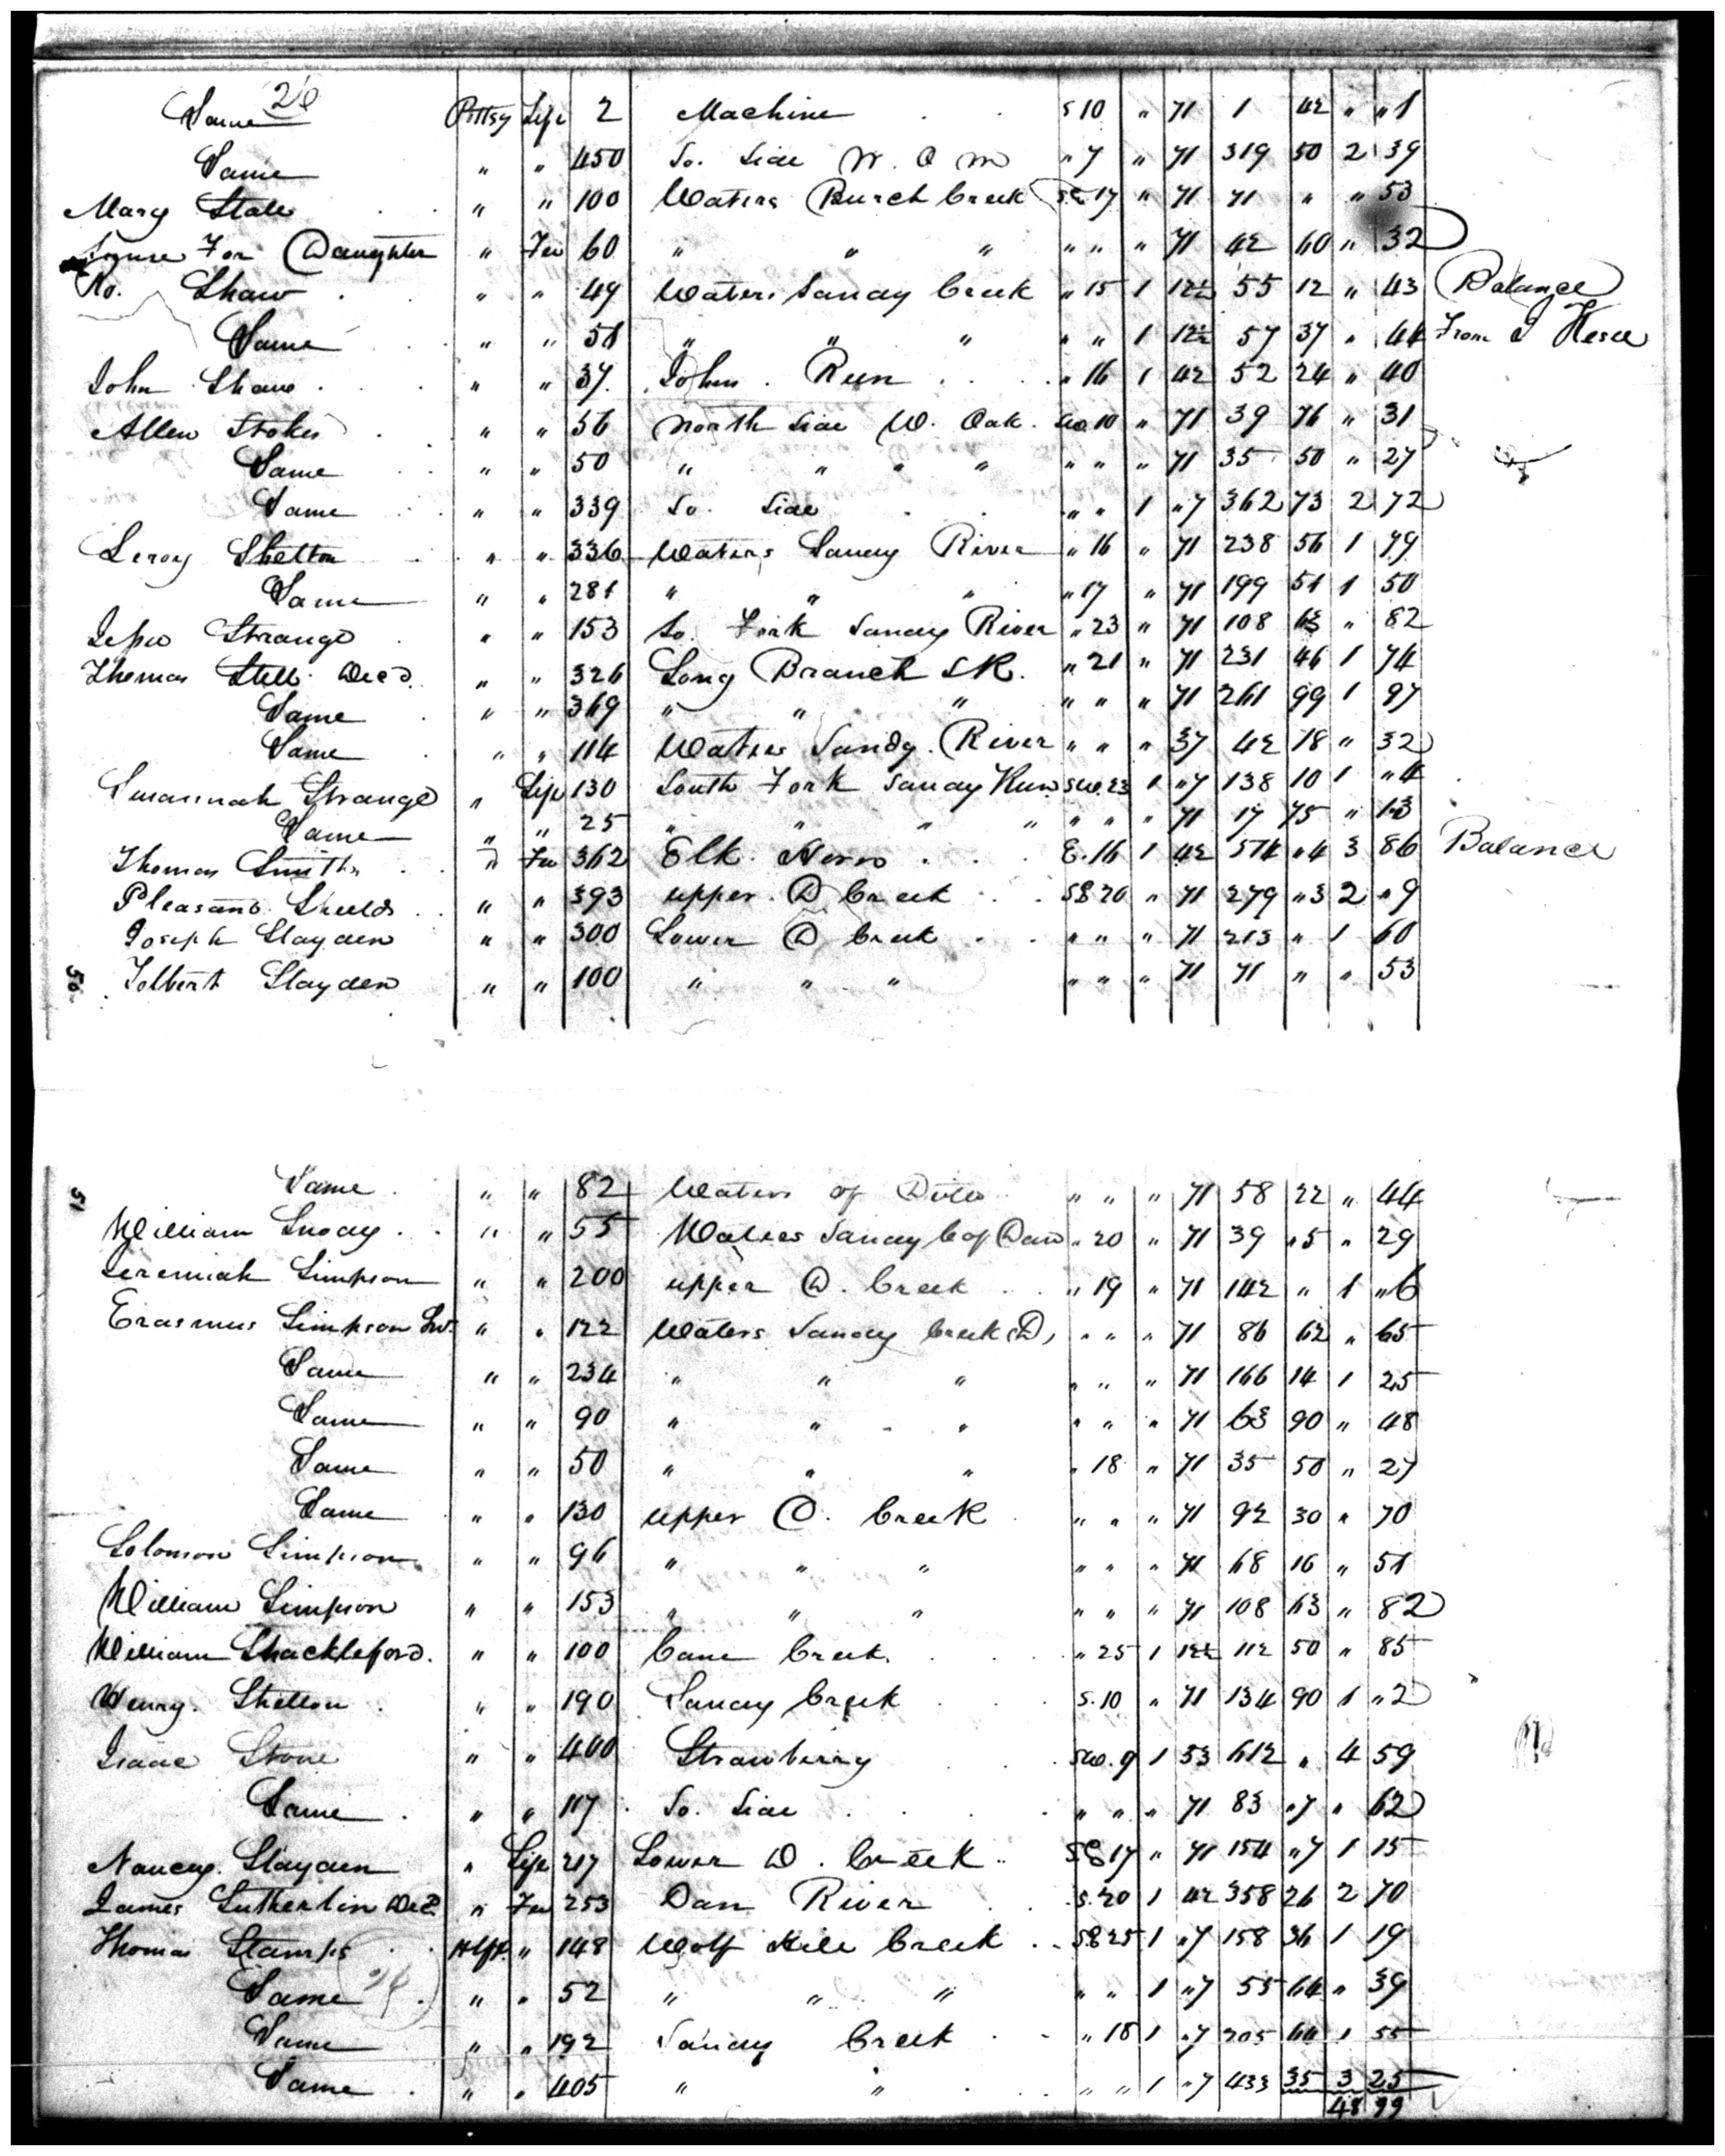 26
Same Pittsy Life 2 Machine S 10 " 71 1 42 " " 1
Same " " 450 So. Side W. O m " 7 " 71 319 50 2 39
Mary State " " 100 Waters Burch Creek SE 17 " 71 71 " " 53
Same For Daughter " Fee 60 " " " " " " 71 42 60 " 32
Ro. Shaw " " 49 Waters Sandy Creek " 15 1 12½ 55 12 " 43 Balance
Same " " 51 " " " " " 1 12½ 57 37 " 44 From
John Shaw " " 37 John Run " 16 1 42 52 24 " 40
Allen Stokes " " 56 North Side W. Oak SW. 10 " 71 39 76 " 31
Same " " 50 " " " " " " " 71 35 50 " 27
Same " " 339 So. Side " " 1 " 7 362 73 2 72
Leroy Shelton " " 336 Waters Sandy River " 16 " 71 238 56 1 79
Same " " 281 " " " " 17 " 71 199 51 1 50
Strange " " 153 So. Fork Sandy River " 23 " 71 108 63 " 82
Thomas Still Dec'd " " 326 Long Branch S R. " 21 " 71 231 46 1 74
Same " " 369 " " " " " " 71 261 99 1 97
Same " " 114 Waters Sandy River " " " 37 42 18 " 32
Susannah Strange " Life 130 South Fork Sandy River SW. 23 1 " 7 138 10 1 " 4
Same " " 25 " " " " " " " 71 17 75 " 13
Thomas Smith " Fee 362 Elk Horn E. 16 1 42 514 " 4 3 86 Balance
Pleasant Shields " " 393 upper D Creek SE 20 " 71 279 " 3 2 " 9
Joseph Slayden " " 300 Lower D Creek " " " 71 213 " 1 60
50 Tolbert Slayden " " 100 " " " " " " 71 71 " " 53
51 Same " " 82 Waters of Ditto " " " 71 58 22 " 44
William Snody " " 55 Waters Sandy C of Dan " 20 " 71 39 " 5 " 29
Jeremiah Simpson " " 200 upper D. Creek " 19 " 71 142 " 1 " 6
Erasmus Simpson " " 122 Waters Sandy Creek (D) " " " 71 86 62 " 65
Same " " 234 " " " " " " 71 166 14 1 25
Same " " 90 " " " " " " 71 63 90 " 48
Same " " 50 " " " " 18 " 71 35 50 " 27
Same " " 130 upper D. Creek " " " 71 92 30 " 70
Solomon Simpson " " 96 " " " " " " 71 68 16 " 51
William Simpson " " 153 " " " " " " 71 108 63 " 82
William Shackleford. " " 100 Cane Creek. " 25 1 12½ 112 50 " 85
Henry Shelton " " 190 Sandy Creek S. 10 " 71 134 90 1 " 2
Isaac Stone " " 400 Strawberry SW. 9 1 53 612 " 4 59
Same " " 117 So. Side " " " 71 83 " 7 " 62
Nancy Slayden " Life 217 Lower D. Creek SE 17 " 71 154 " 7 1 15
James Sutherlin Dec'd " Fee 253 Dan River S. 20 1 42 358 26 2 70
Thomas Stamps Hlfx. " 148 Wolf Hill Creek SE 25 1 " 7 158 36 1 19
Same " " 52 " " " " " 1 " 7 55 64 " 39
Same " " 192 Sandy Creek " 18 1 " 7 205 44 1 55
Same " " 405 " " " " 1 " 7 433 35 3 25
48 99